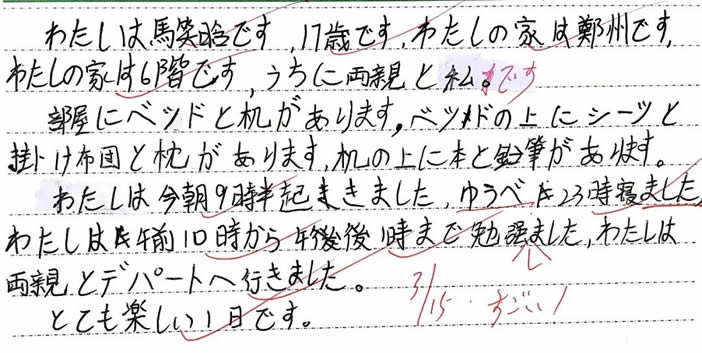 わたしは馬笑晗です,17歳です,わたしの家は鄭州です,
わたしの家は6階です,うちに両親と私です。
部屋にベッドと机があります,ベッドの上にシーツと
掛け布団と枕があります,机の上に本と鉛筆があります。
わたしは今朝9時半起きました,ゆうべ23時寝ました,
わたしは午前10時から午後1時まで勉強しました,わたしは
両親とデパートへ行きました。
とても楽しい1日です。
3/15 すごい!